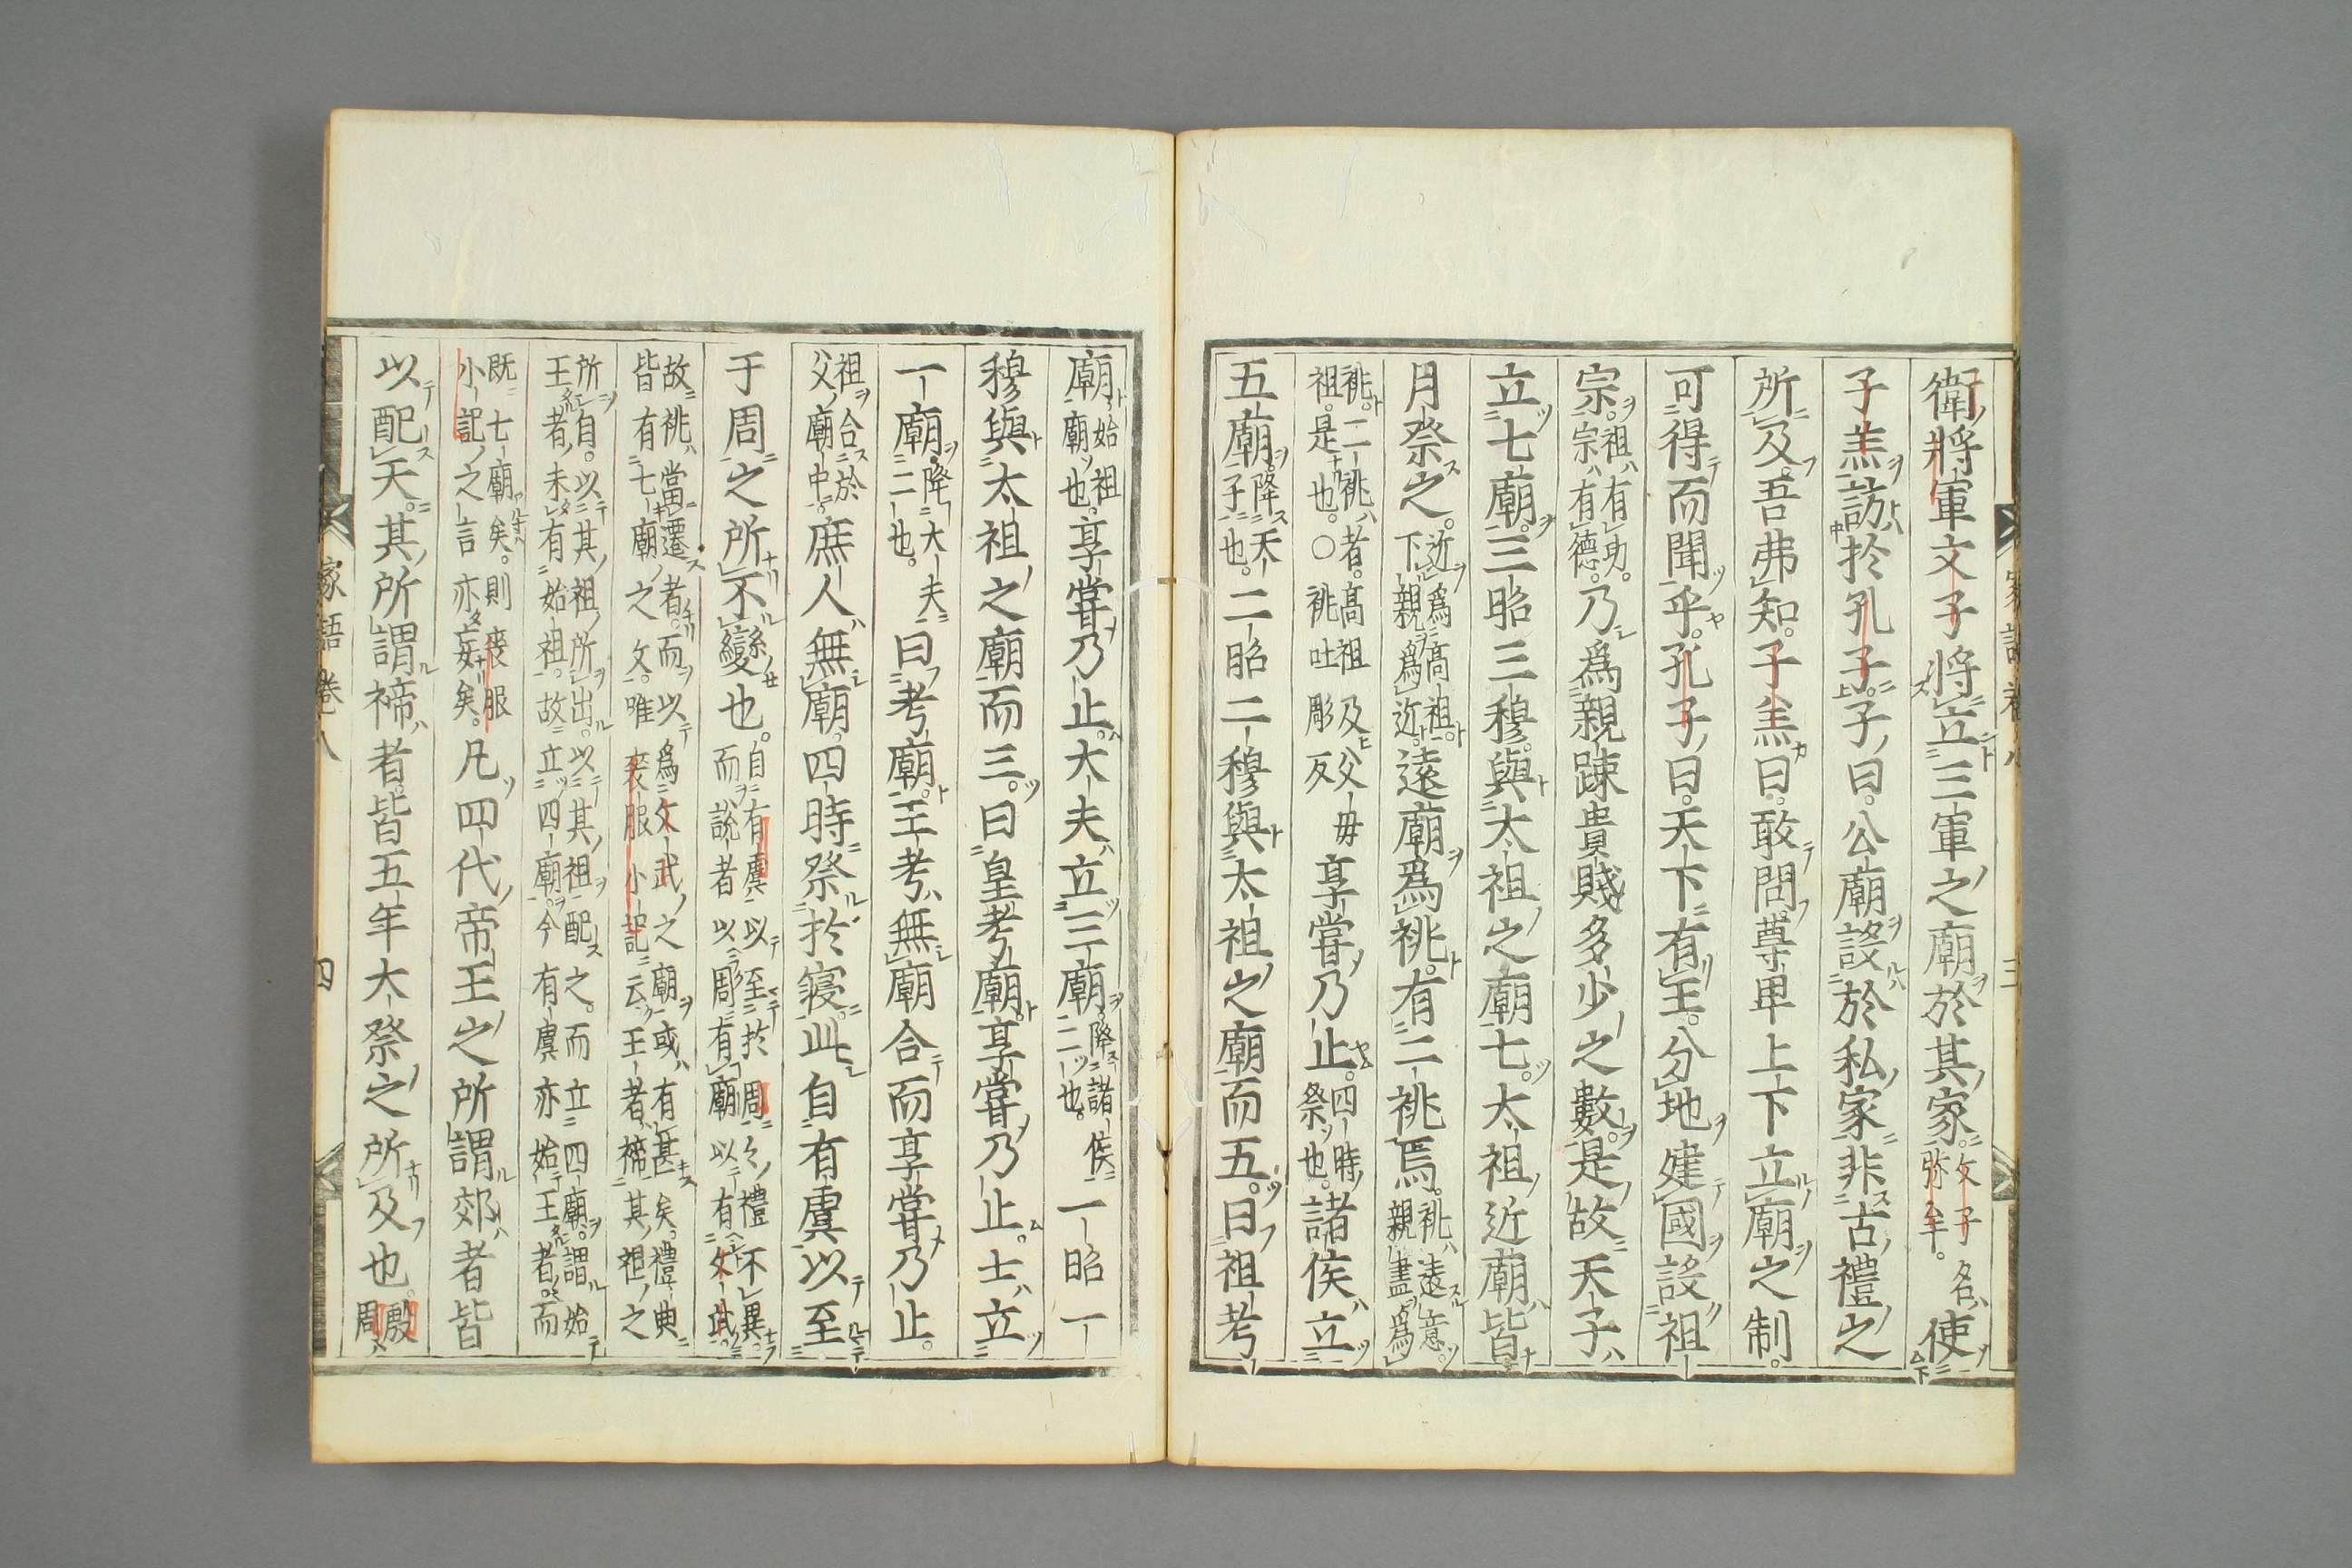 衛將軍文子將立三軍之廟於其家文子名弥牟。使
子羔訪於孔子。子曰。公廟設於私家非古禮之
所及。吾弗知。子羔曰。敢問尊卑上下立廟之制。
可得而聞乎。孔子曰。天下有王。分地建國設祖
宗。祖有功。宗有德。乃爲親踈貴賤多少之數。是故天子
立七廟。三昭三穆。與太祖之廟七。太祖近廟皆
月祭之。近爲高祖下親爲近。遠廟爲祧。有二祧焉。祧遠意。親盡爲
祧。二祧者。高祖及父母祖。是也。〇祧吐彫反享嘗乃止。四時祭也。諸侯立
五廟。降天子二也。二昭二穆與太祖之廟而五。曰祖考
廟始祖廟也。享嘗乃止。大夫立三廟。降諸侯二也。一昭一
穆與太祖之廟而三。曰皇考廟。享嘗乃止。士立
一廟。降大夫二也。曰考廟。王考無廟合而享嘗乃止。
祖合於父廟中。庶人無廟。四時祭於寢。此自有虞以至
于周之所不變也。自有虞以至於周周禮不異。而說者以周有廟以有文武。
故祧當遷者。而以爲文武之廟或有甚矣。禮典皆有七廟之文。唯喪服小記云王者禘其祖之
所自。以其祖所出。以其祖配之。而立四廟。謂始王者未有始祖。故立四廟。今有虞亦始王者。而
既七廟矣。則喪服小記之言亦妄矣。凡四代帝王之所謂郊者皆
以配天。其所謂禘者。皆五年大祭之所及也。殷周
家語卷八 三
家語卷八 四